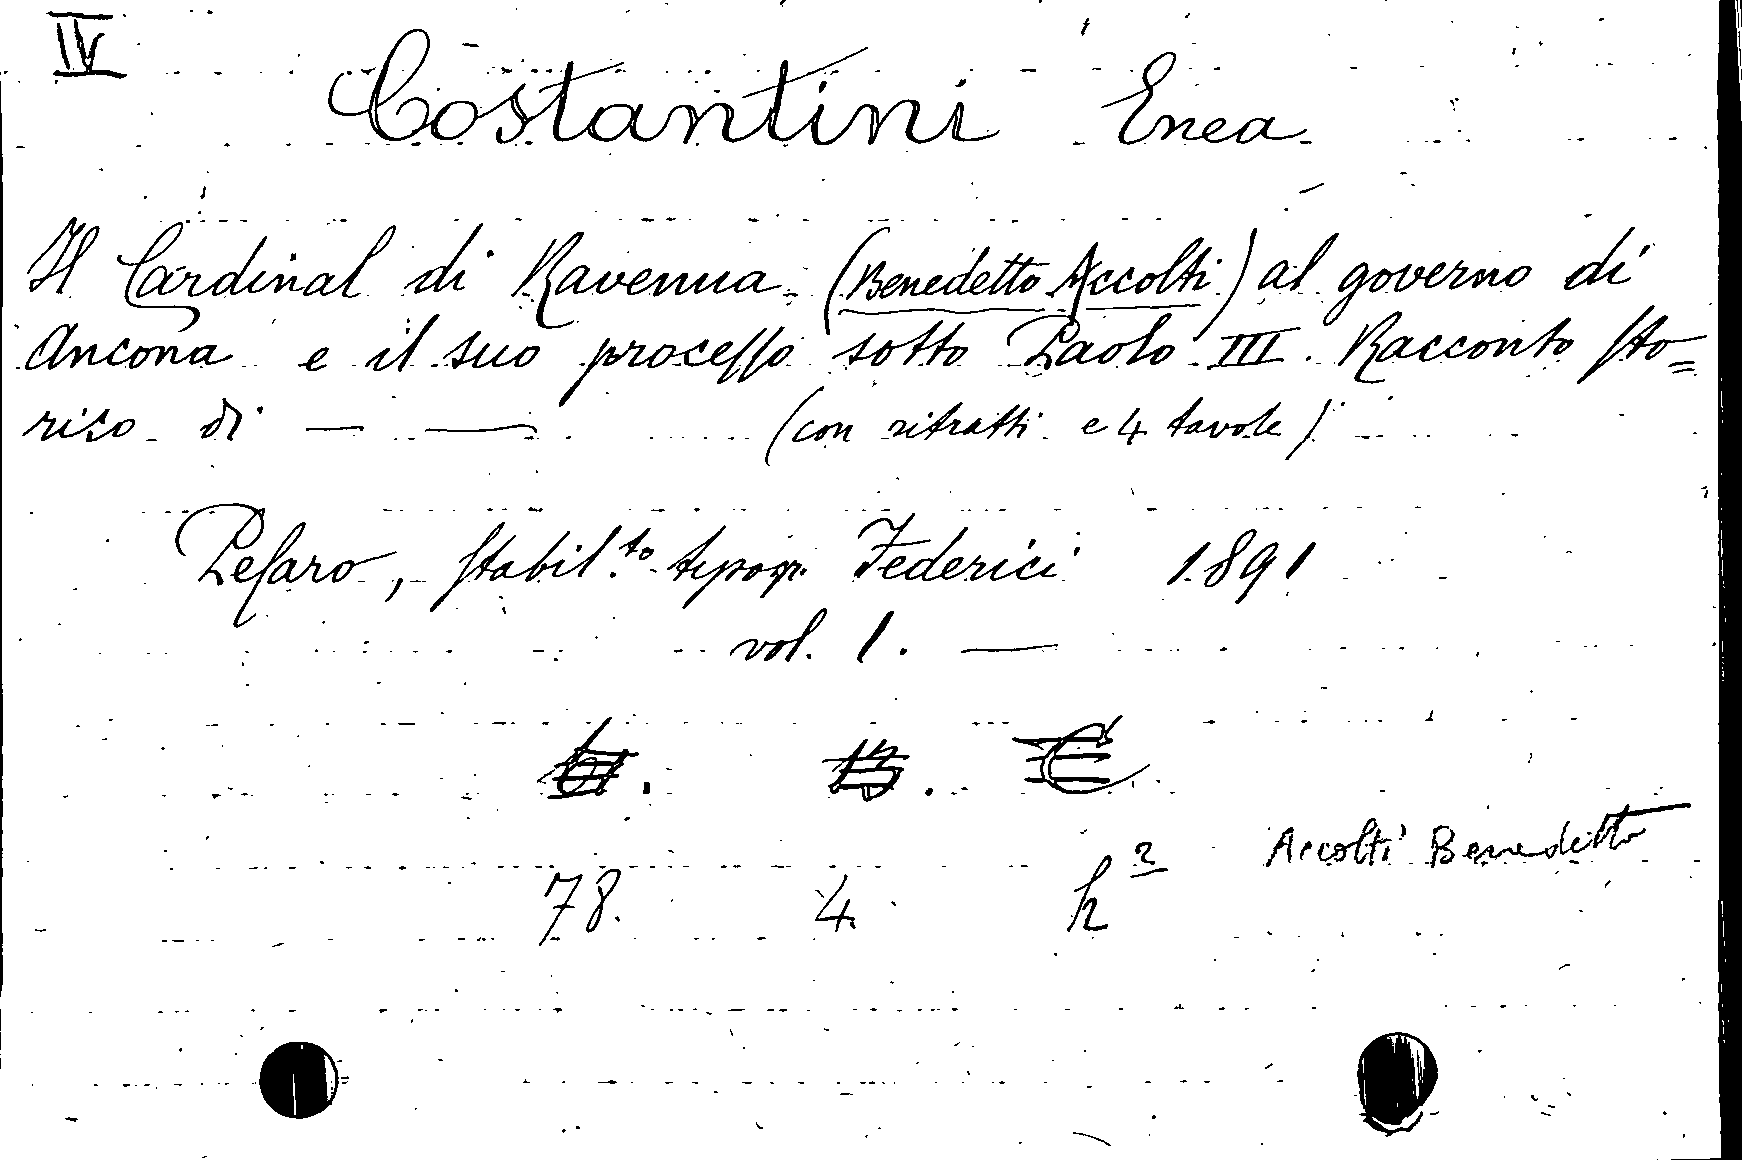 IV
Costantini Enea
Il Cardinal di Ravenna (Benedetto Accolti) al governo di
Ancona e il suo processo sotto Paolo III. Racconto sto=
rico di — — (con ritratti e 4 tavole)
Pesaro, stabil.to tipogr. Federici 1891
vol. 1. —
Accolti Benedetto
78. 4. h2